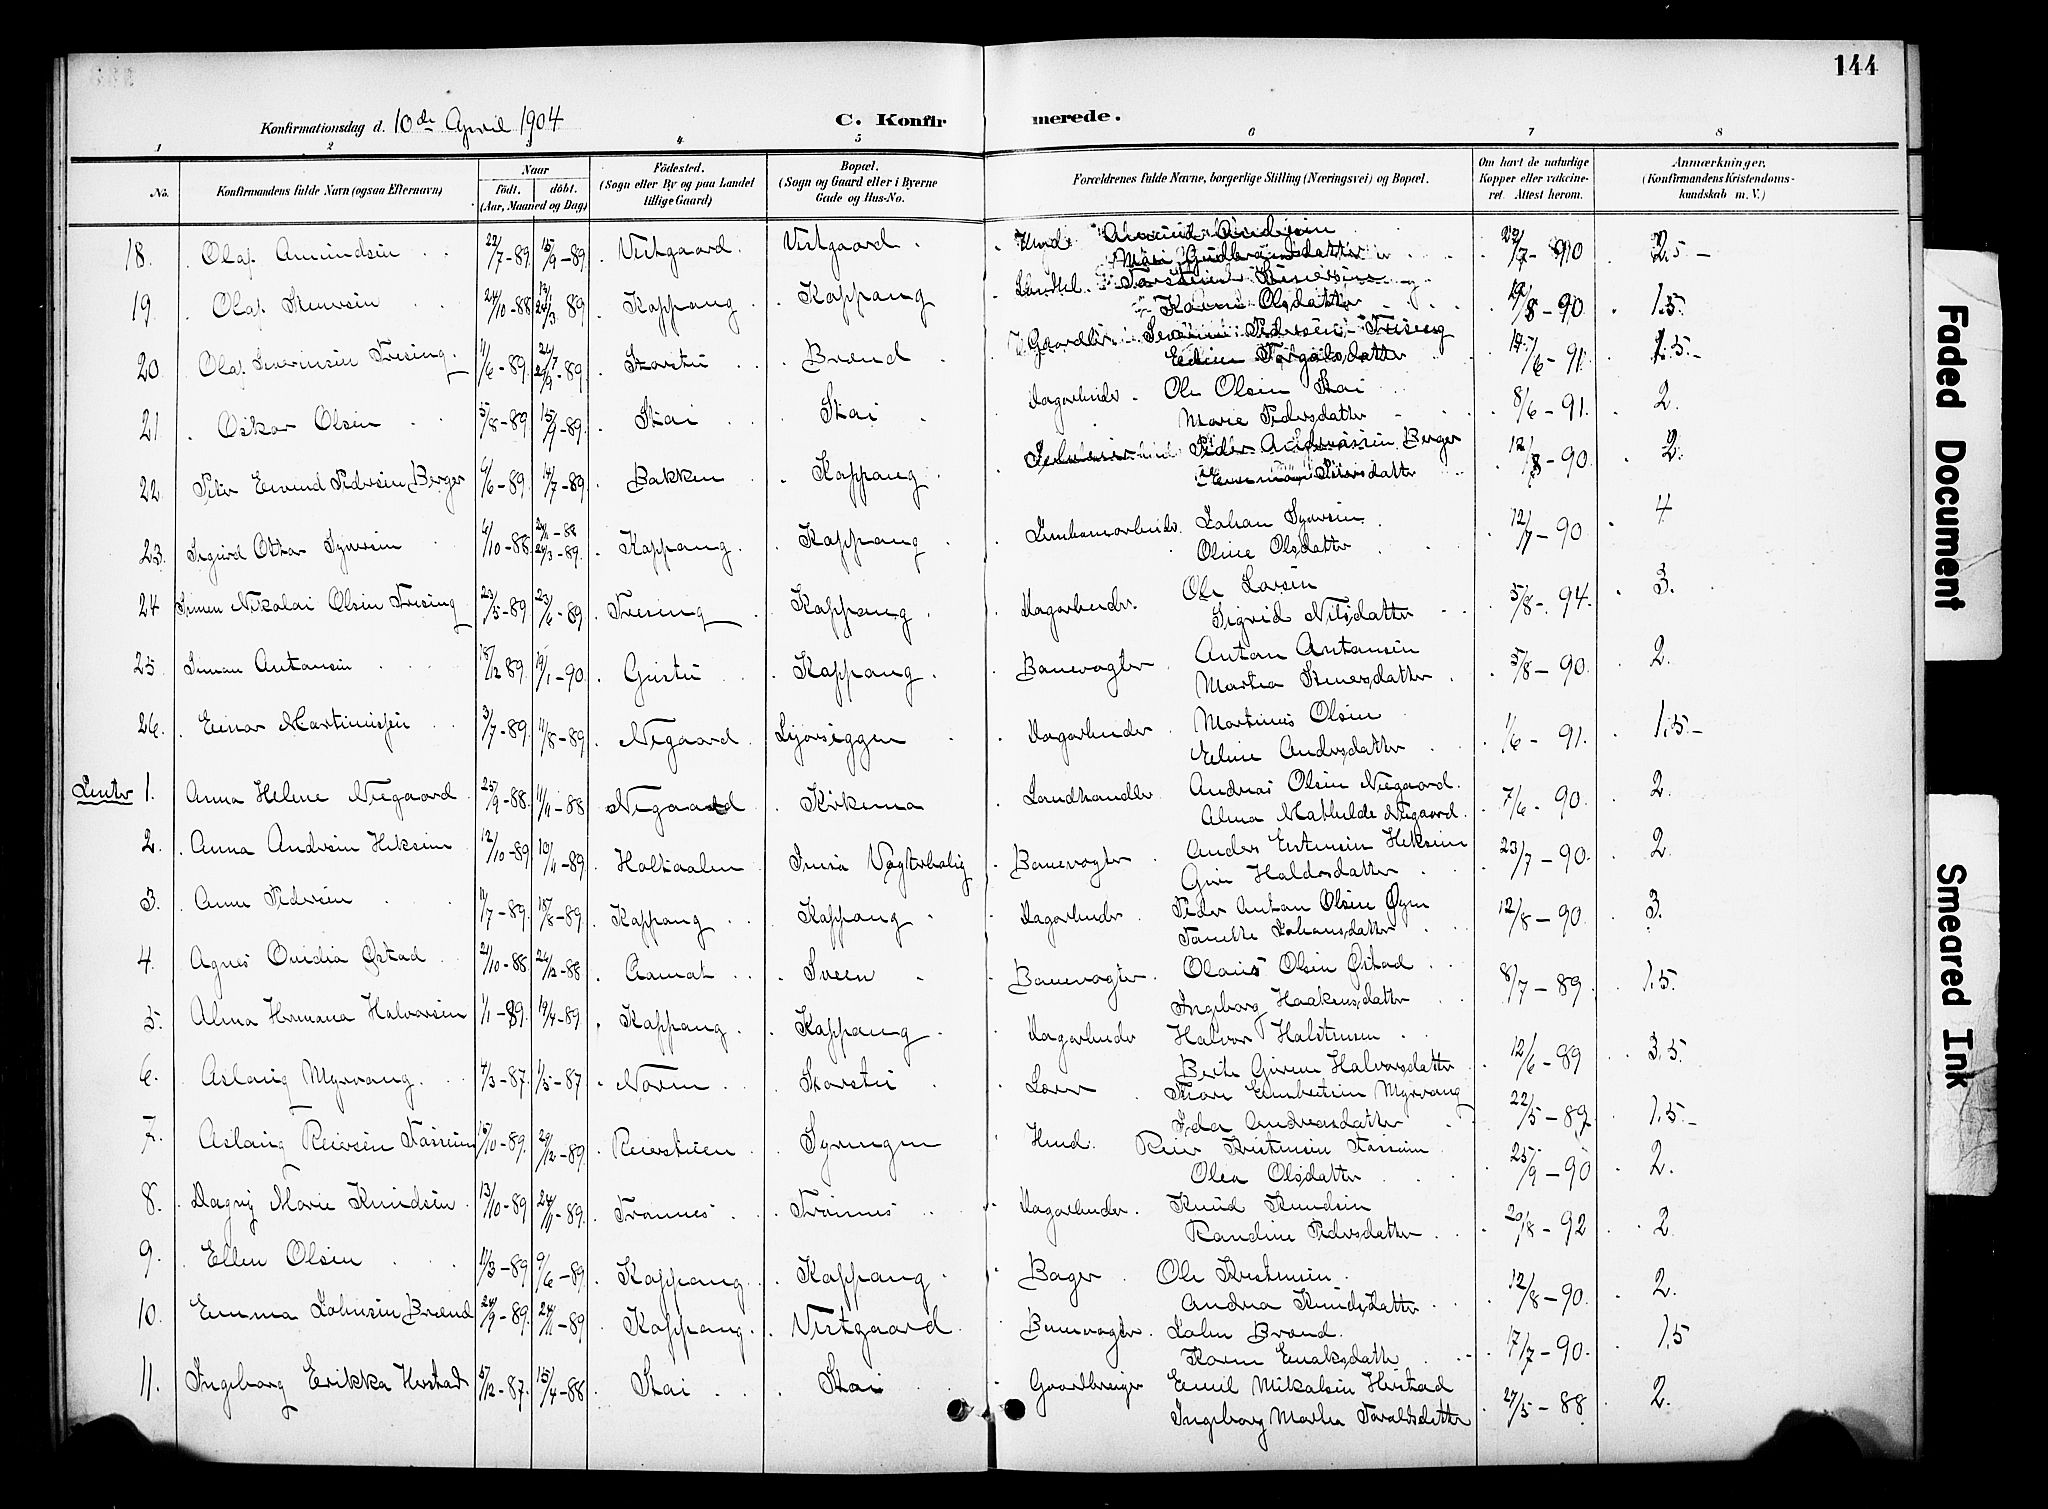 144
Konfirmationsdag d. 10de April 1904 C. Konfirmerede.
1 2 3 4 5 6 7 8
No. Konfirmandens fulde Navn (ogsaa Efternavn) Naar født. døbt. (Aar, Maaned og Dag) Fødested. (Sogn eller By og paa Landet tillige Gaard) Bopæl. (Sogn og Gaard eller i Byerne Gade og Hus-No. Forældrenes fulde Navne, borgerlige Stilling (Næringsvei) og Bopæl. Om havt de naturlige Kopper eller vakcineret. Attest herom. Anmærkninger. (Konfirmandens Kristendomskundskab m. V.)
18. Olaf Amundsen 22/7-89 15/9-89 Vestgaard Vestgaard Amund
Mari Gudbrandsdatter 2,5
19. Olaf Stenersen 24/10-88 89 Koppang Koppang Torstein Stenersen
Karen Olsdatter 19/8-90 1.5
20. Olaf Severinsen Trøsing 89 Storstu Brænd Severin Pedersen Trøseng
Torgalsdatter /6-91 1.5
21. Oskar Olsen 5/8-89 15/9-89 Stai Stai Dagarbeider Ole Olsen Stai
Marie Pedersdatter 8/6-91 2.
22. Peter Edvend Pedersen Berger 6/6-89 14/7-89 Bakken Koppang Peder Andreassen Berger
12/8-90 2.
23. Sigurd Ottar Syversen 4/10-88 24/3-89 Koppang Koppang Jernbanearbeider Johan Syversen
Oline Olsdatter 12/7-90 4
24 Simen Nikolai Olsen Trøsing 23/5-89 23/6-89 Trøsing Koppang Dagarbeider Ole Larsen
Sigrid Nilsdatter 5/8-94 3.
25. Simen Antonsen 18/12 89 19/1-90 Koppang Banevogter Anton Antonsen
Martea Stenersdatter 5/8-90 2.
26. Einar Martinussen 3/7-89 11/8-89 Negaard Dagarbeider Martinus Olsen
Eline Andersdatter 1/6-91. 1.5
Jenter 1. Anna Helene Negaard 25/9-88 11/11-88 Negaard Kirkemo Landhandler Andreas Olsen Negaard
Alma Mathilde Negaard 7/6-90. 2.
2. Anna Andersen Heksem 12/10-89 10/11-89 Holtaalen Imsa Vogterbolig Banevogter Anders Estensen Heksem
Guri Haldorsdatter 23/7-90 2.
3. Anne Pedersen 11/7-89 18/8-89 Koppang Koppang Dagarbeider Peder Anton Olsen Øyen
Tanette Johansdatter 12/8-90 3.
4. Agnes Ovidia Østad 21/10-88 26/12-88 Aamot Sveen Banevogter Olaus Olsen Østad
Ingeborg Haakensdatter 8/7-89 1,5.
5. Alma Hermana Halvorsen 1/1-89 19/4-89 Koppang Koppang Dagarbeider Halvor Halstensen
Berte Gurine Halvorsdatter 12/6-89 3.5.
6. Aslaug Myrvang 4/3-87 1/5-87 Noren Storstu Lærer Thore Embretsen Myrvang
Ida Andreasdatter 22/5-89 1,5.
7. Aslaug Reiersen Fossum 15/10-89 29/12-89 Reierstuen Syringen Husmd. Reier Kristensen Fossum
Olea Olsdatter 25/9-90 2.
8. Dagny Marie Knudsen 13/10-89 24/11-89 Trønnes Trønnes Dagarbeider Knud Knudsen
Randine Pedersdatter 20/8-92 2
9. Ellen Olsen 11/3-89 9/6-89 Koppang Koppang Bager Ole Kristensen
Andrea Knudsdatter 12/8-90. 2.
10. Emma Johnsen Brænd 24/9-89 24/11-89 Koppang Vestgaard Banevogter John Brænd
Karen Enaksdatter 17/7-90. 1,5
11. Ingeborg Erikka Herstad 5/12-87 15/4-88 Stai Stai Gaardbruger Emil Mikalsen Herstad
Ingeborg Marka Taraldsdatter 27/5-88 2.
Faded Document
Smeared Ink